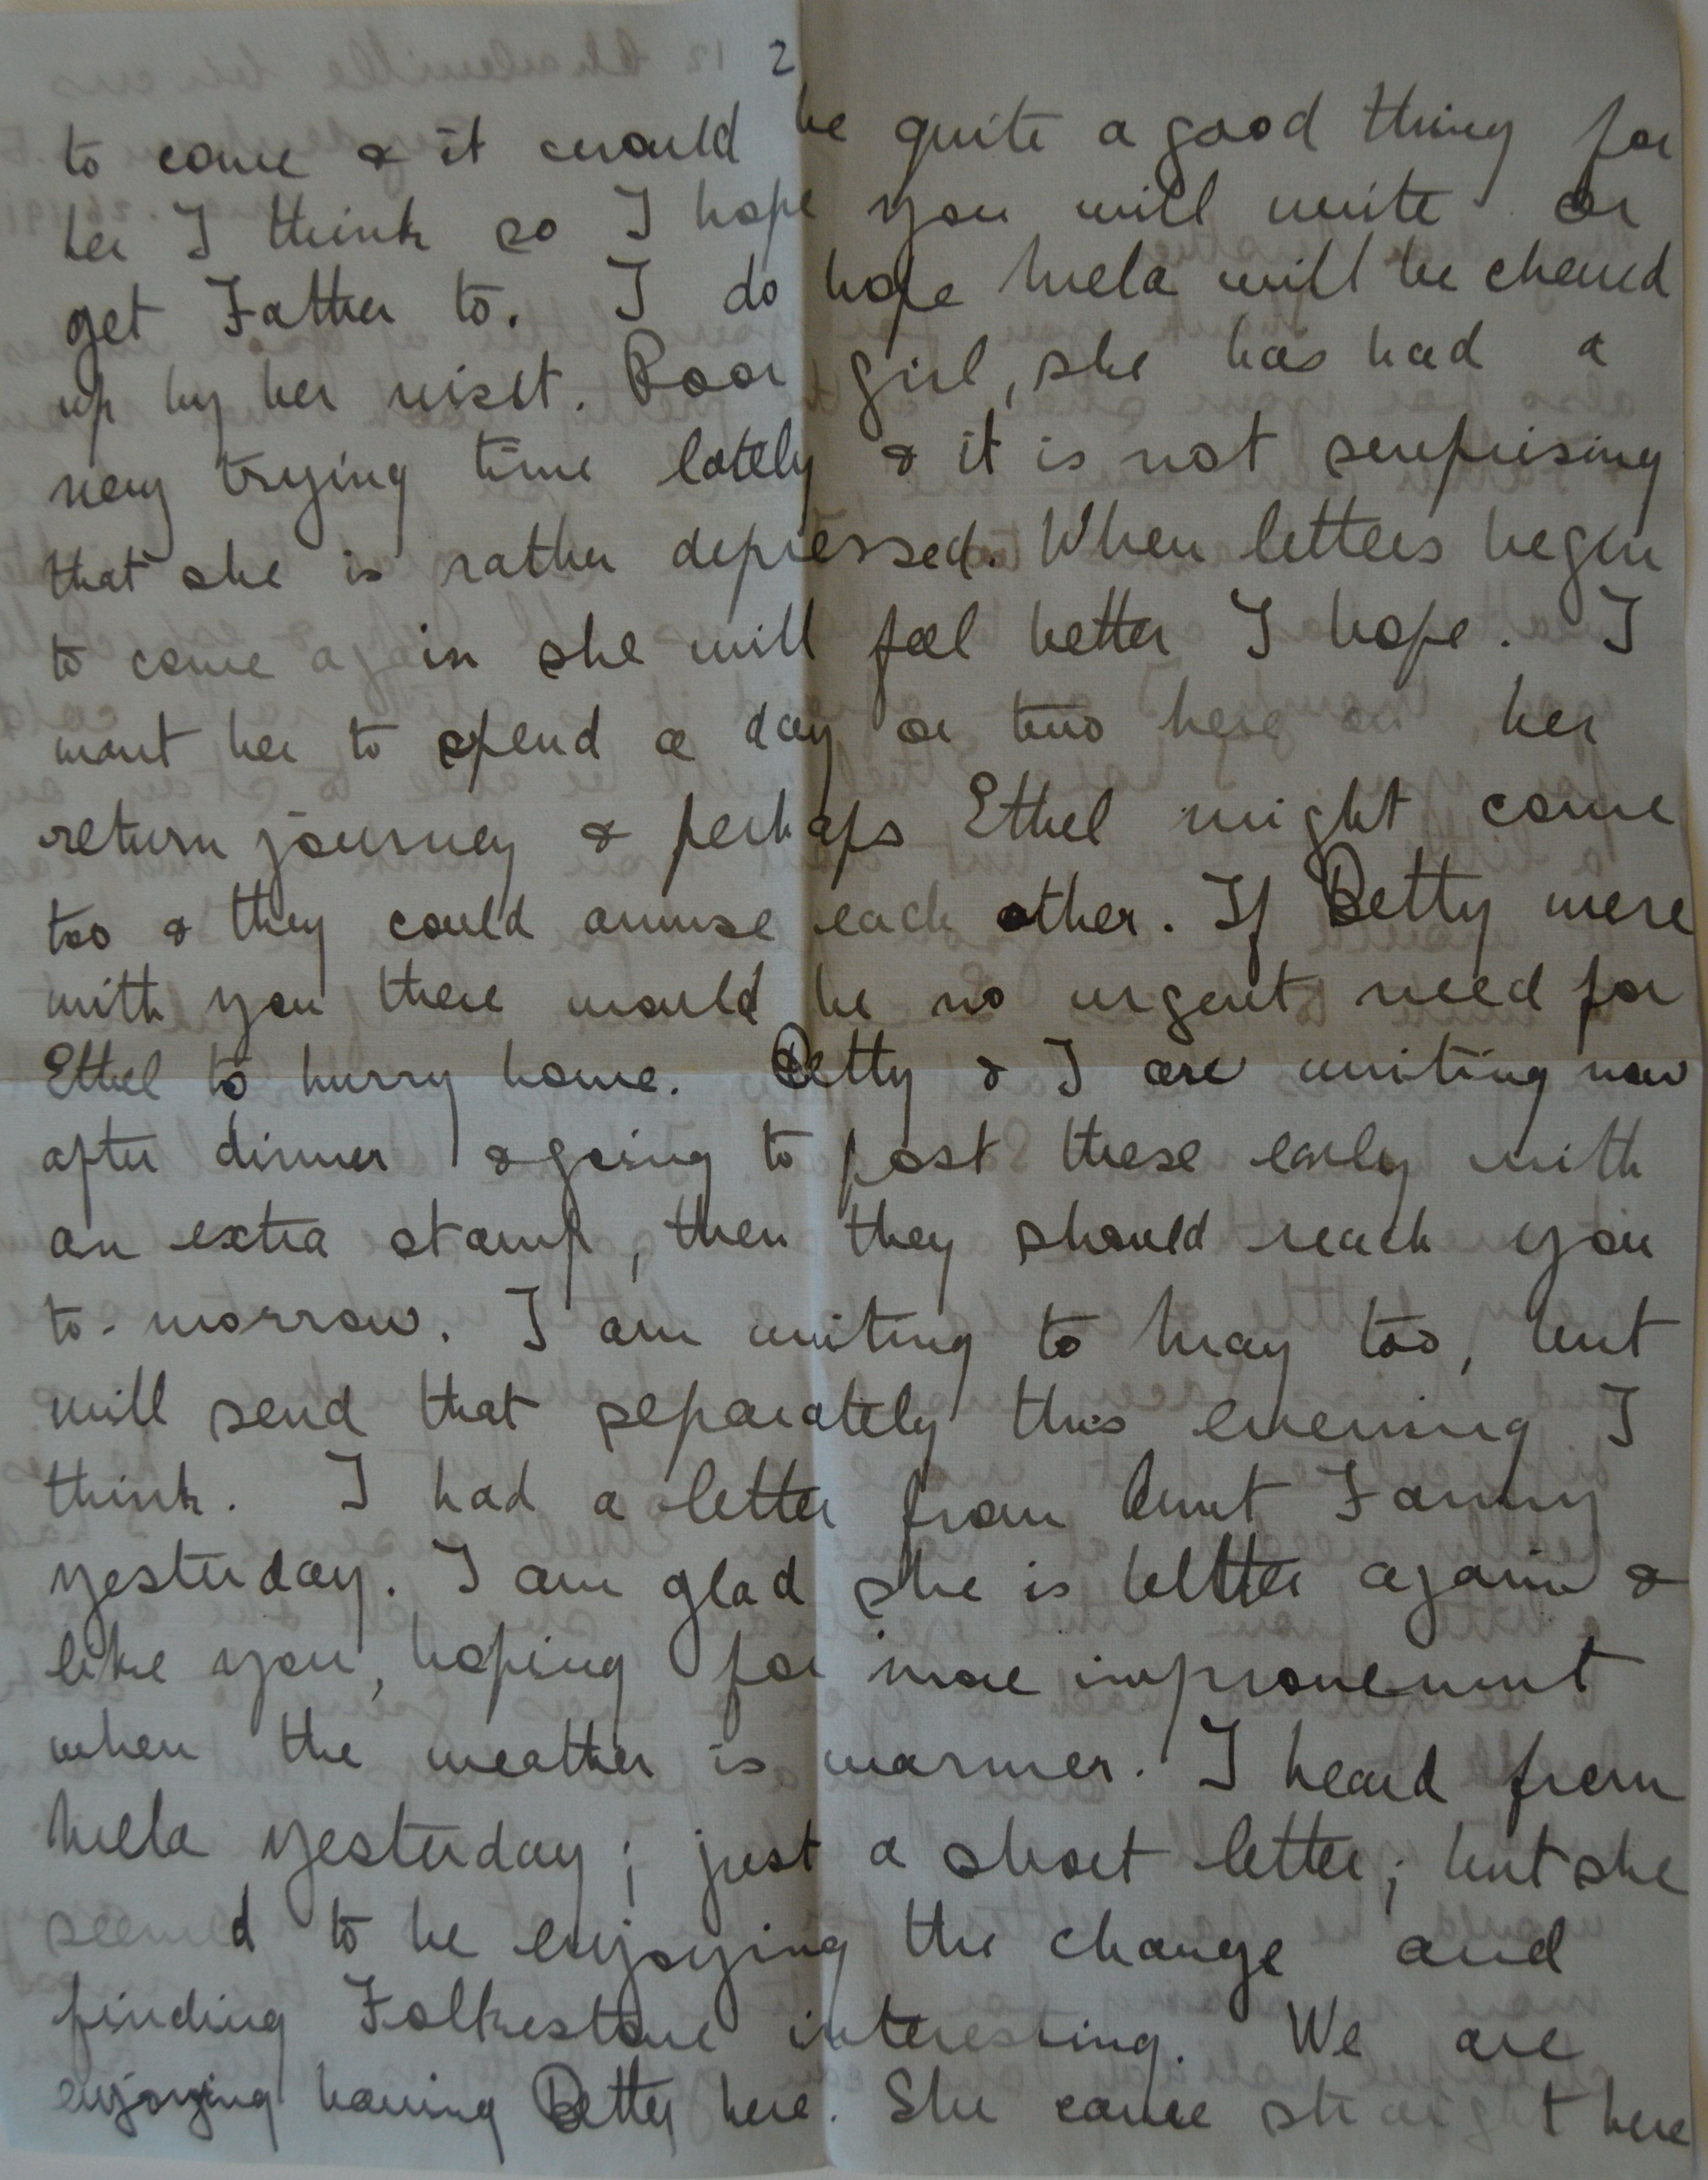 2
to come & it would be quite a good thing for
her I think so I hope you will write or
get Father to. I do hope Mela will be cheered
up by her visit. Poor girl, she has had a
very trying time lately & it is not surprising
that she is rather depressed. When letters begin
to come again she will feel better I hope. I
want her to spend a day or two here on her
return journey & perhaps Ethel might come
too & they could amuse each other. If Betty were
with you there would be no urgent need for
Ethel to hurry home. Betty & I are writing now
after dinner & going to post these early with
an extra stamp, then they should reach you
to-morrow. I am writing to May too, but
will send that separately this evening I
think. I had a letter from Aunt Fanny
yesterday. I am glad she is better again &
like you, hoping for more improvement
when the weather is warmer. I heard from
Mela yesterday; just a short letter; but she
seemed to be enjoying the change and
finding Folkestone interesting. We are
enjoying having Betty here. She came straight here